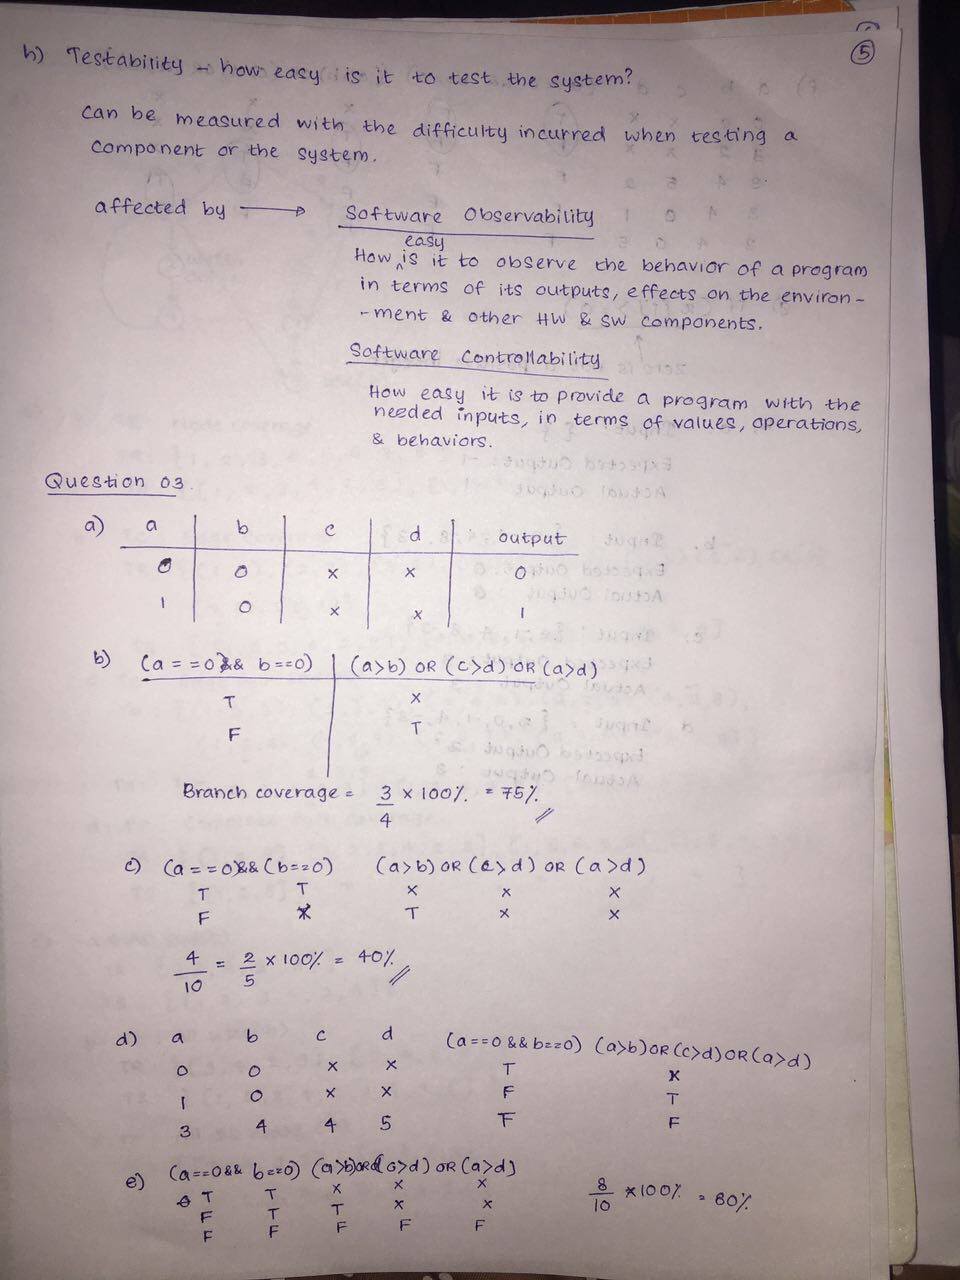 5
h) Testability → how easy is it to test the system?
can be measured with the difficulty incurred when testing a
component or the system.
affected by → Software Observability
easy
How is it to observe the behavior of a program
in terms of its outputs, effects on the environ-
-ment & other HW & SW components.
Software Controllability
How easy it is to provide a program with the
needed inputs, in terms of values, operations,
& behaviors.
Question 03.
a) a b c d output
0 0 x x 0
1 0 x x 1
b) (a==0 && b==0) (a>b) OR (c>d) OR (a>d)
T x
F T
Branch coverage = 3/4 x 100% = 75%
c) (a==0)&&(b==0) (a>b) OR (c>d) OR (a>d)
T T x x x
F x T x x
4/10 = 2/5 x 100% = 40%
d) a b c d (a==0 && b==0) (a>b)OR(c>d)OR(a>d)
0 0 x x T x
1 0 x x F T
3 4 4 5 F F
e) (a==0 && b==0) (a>b)OR(c>d) OR (a>d)
T T x x x
F T T x x
F F F F F
8/10 x 100% = 80%